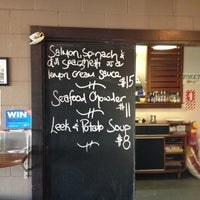 Salmon, Spinach &
dill spaghetti in a
lemon cream sauce
$15
Seafood Chowder
$11
Leek & Potato Soup
$8
WIN